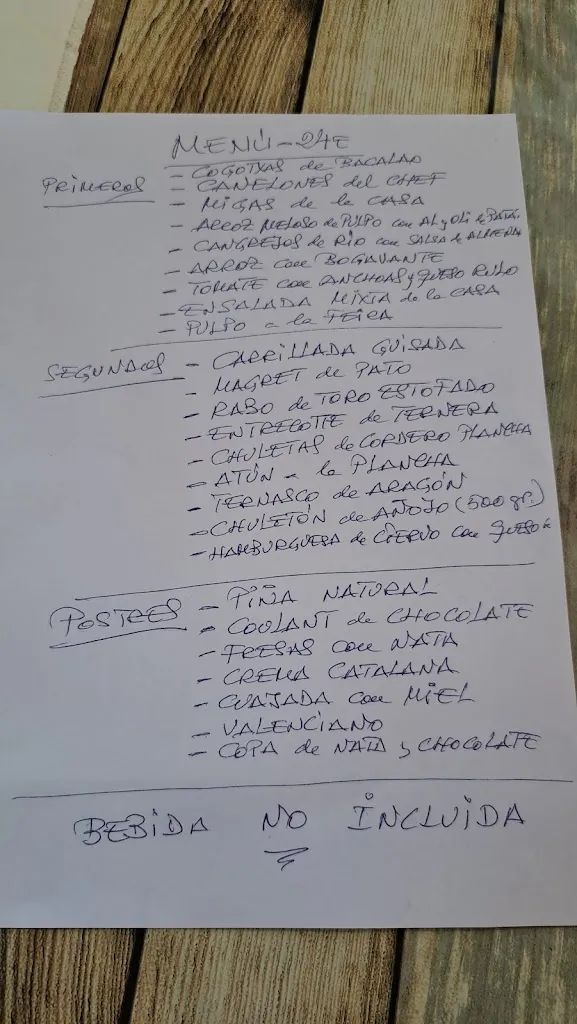 MENÚ - 24€
PRIMEROS - COGOTXAS de BACALAO
- CANELONES del CHEF
- MIGAS de la CASA
- ARROZ MELOSO de PULPO con AL y OLI de PATA
- CANGREJOS de RIO con SALSA de ALMEJA
- ARROZ con BOGAVANTE
- TOMATE con ANCHOAS y QUESO RULO
- ENSALADA MIXTA de la CASA
- PULPO a la FEIRA
SEGUNDOS - CARRILLADA GUISADA
- MAGRET de PATO
- RABO de TORO ESTOFADO
- ENTRECOTTE de TERNERA
- CHULETAS de CORDERO PLANCHA
- ATÚN a la PLANCHA
- TERNASCO de ARAGÓN
- CHULETÓN de AÑOJO (500 gr.)
- HAMBURGUESA de CIERVO con QUESO
POSTRES - PIÑA NATURAL
- COULANT de CHOCOLATE
- FRESAS con NATA
- CREMA CATALANA
- CUAJADA con MIEL
- VALENCIANO
- COPA de NATA y CHOCOLATE
BEBIDA NO INCLUIDA